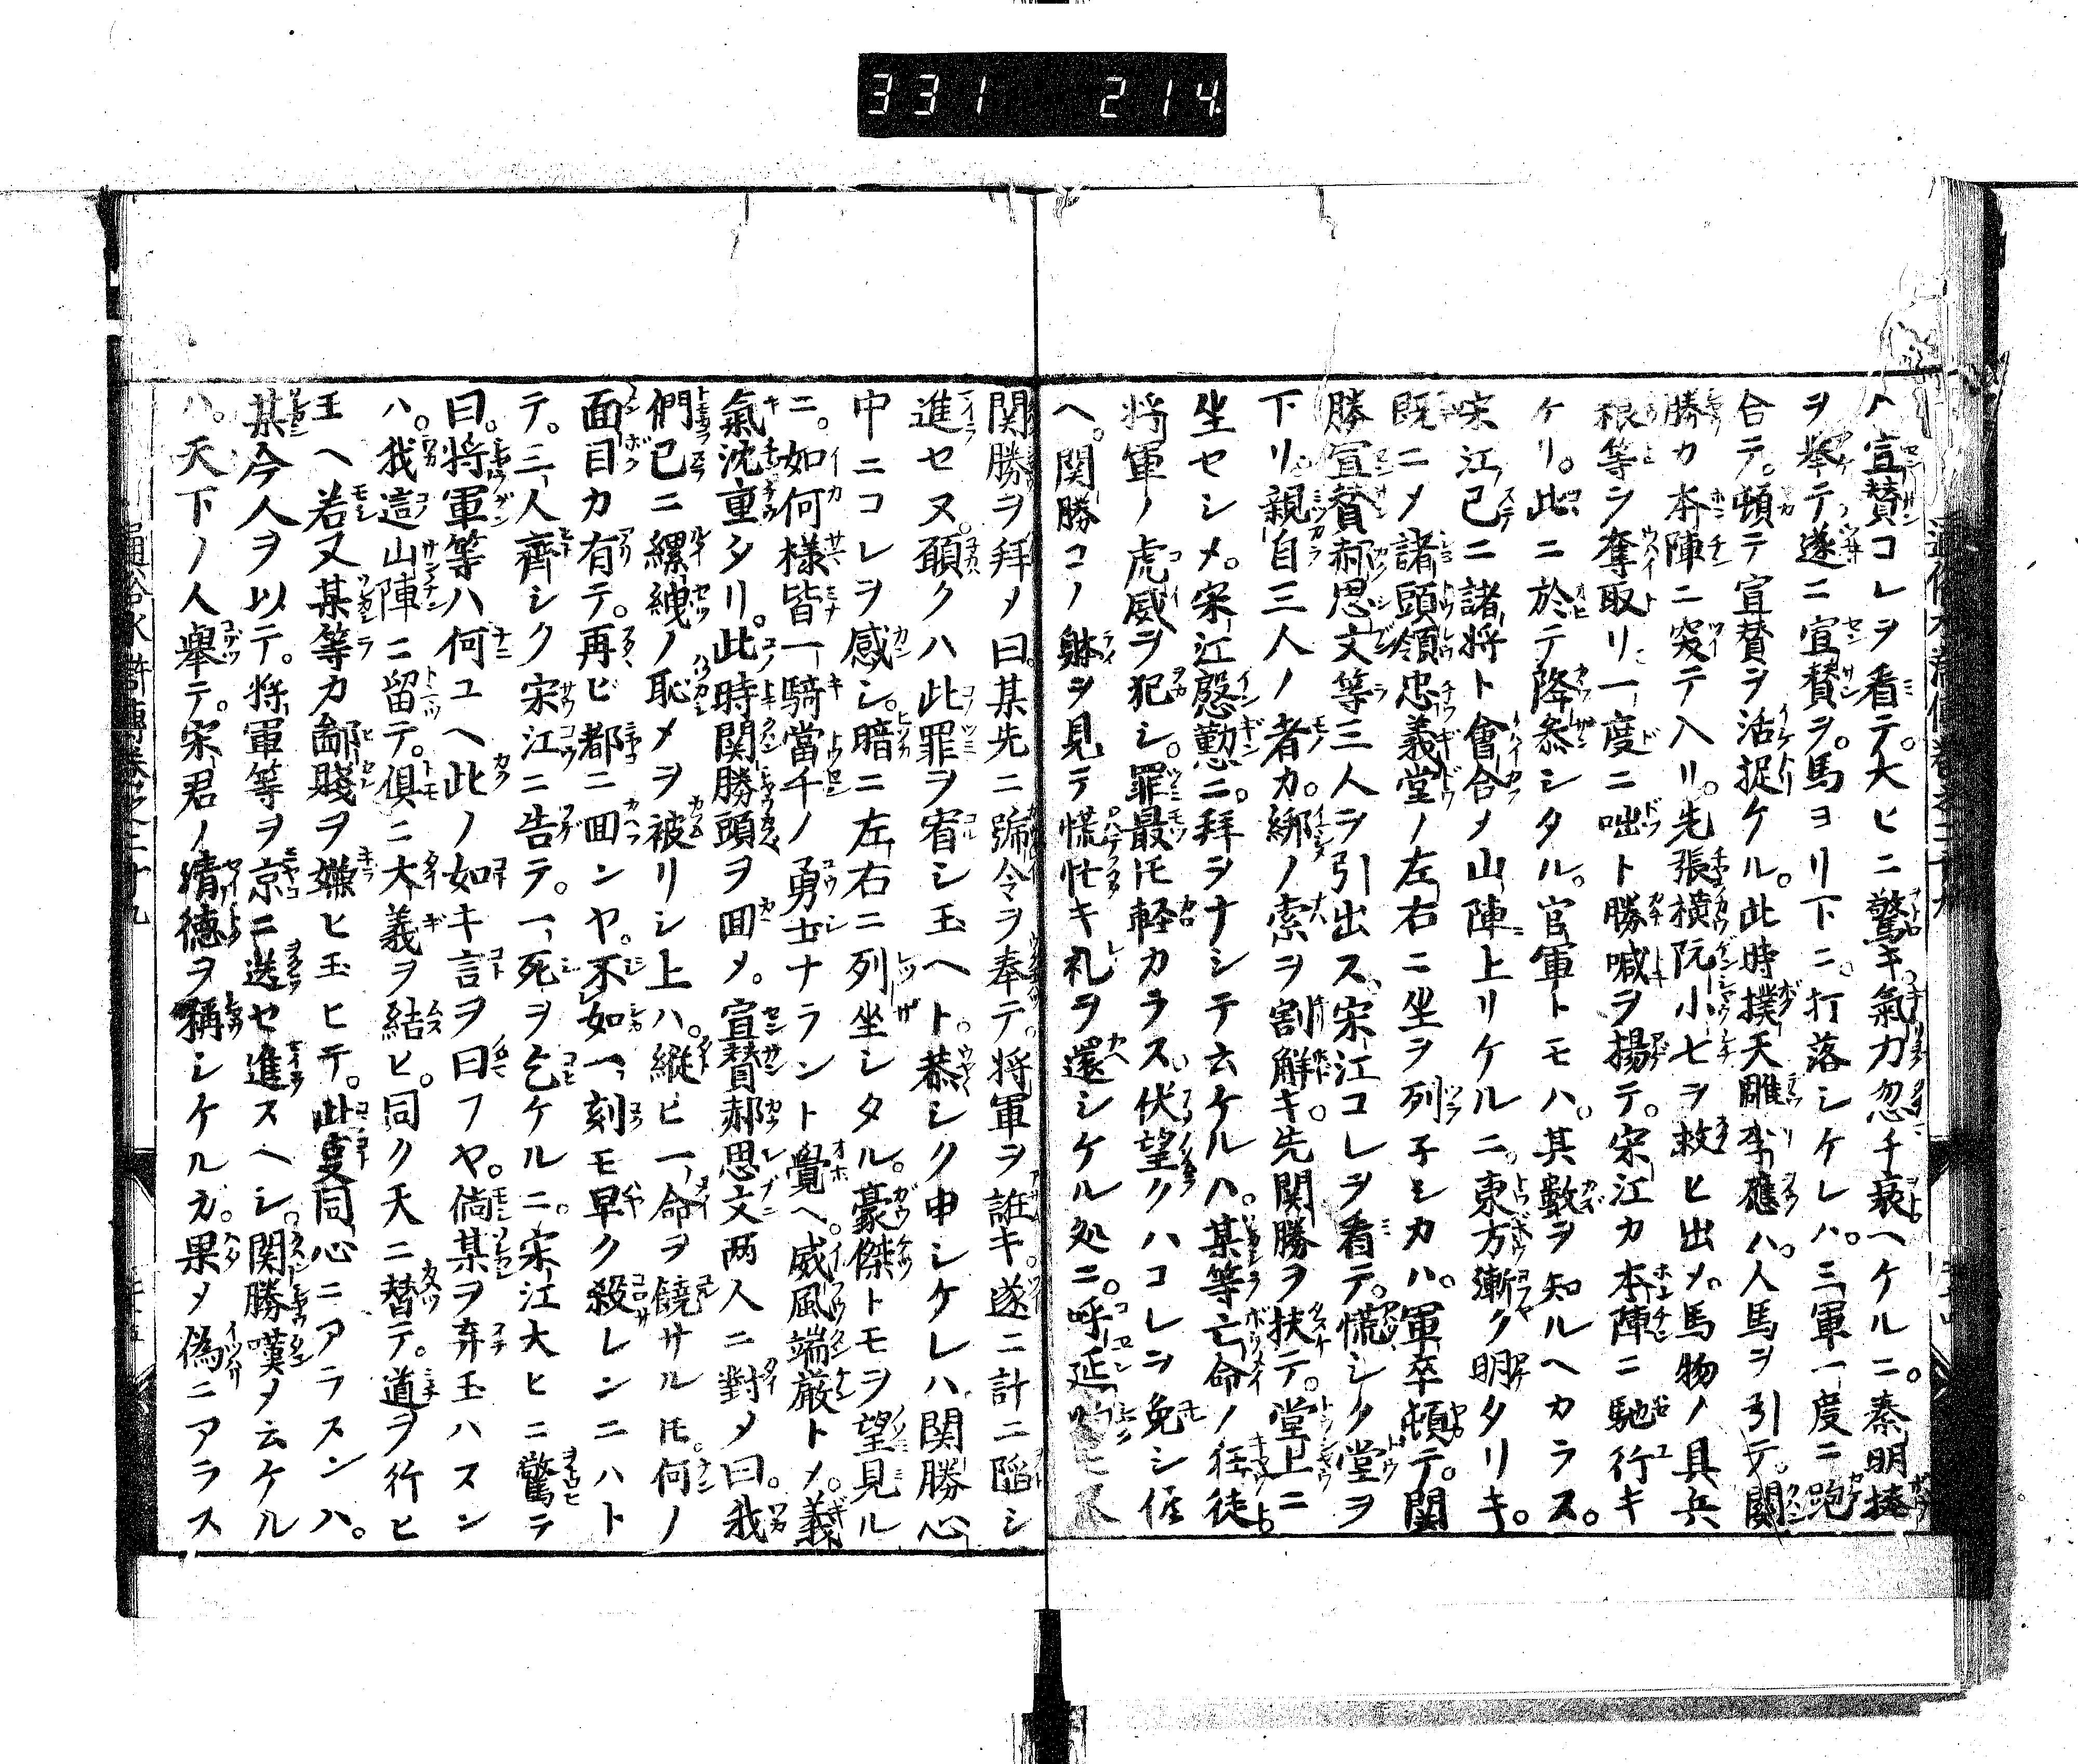 331 214
ハ宣賛コレヲ看テ。大ヒニ驚キ。氣力忽チ衰ヘケルニ。秦明棒
ヲ擧テ遂ニ宣賛ヲ。馬ヨリ下ニ。打落シケレハ。三軍一度ニ跑
合テ。頓テ宣賛ヲ活捉ケル。此時撲天雕李應ハ。人馬ヲ引テ。関
勝カ本陣ニ突テ入リ。先張横阮小七ヲ救ヒ出メ。馬物ノ具兵
粮等ヲ奪取リ一度ニ咄ト勝喊ヲ揚テ。宋江カ本陣ニ馳行キ
ケリ。此ニ於テ降叅シタル。官軍トモハ。其數ヲ知ルヘカラス。
宋江已ニ諸将ト會合メ山陣上リケルニ。東方漸ク明タリキ。
既ニメ諸頭領忠義堂ノ左右ニ坐ヲ列子シカハ。軍卒頓テ。関
勝宣賛郝思文等三人ヲ引出ス。宋江コレヲ看テ。慌シク堂ヲ
下リ。親自三人ノ者カ。綁ノ索ヲ割解キ。先関勝ヲ扶テ。堂上ニ
坐セシメ。宋江慇懃ニ。拜ヲナシテ云ケルハ。某等亡命ノ狂徒
将軍ノ虎威ヲ犯シ。罪最モ軽カラス。伏望クハコレヲ免シ
ヘ。関勝コノ躰ヲ見テ慌忙キ礼ヲ還シケル処ニ。呼延
関勝ヲ拜メ曰。某先ニ號令ヲ奉テ。将軍ヲ誑キ。遂ニ計ニ陥シ
進セヌ。願クハ此罪ヲ宥シ玉ヘト。恭シク申シケレハ関勝心
中ニコレヲ感シ。暗ニ左右ニ列坐シタル。豪傑トモヲ望見ル
ニ。如何様皆一騎當千ノ勇士ナラント覺ヘ。威風端厳トメ。義
氣沈重タリ。此時関勝頭ヲ囬メ。宣賛郝思文两人ニ對メ曰。我
們已ニ縲絏ノ恥メヲ被リシ上ハ。縦ヒ一命ヲ饒サルトモ。何ノ
面目カ有テ。再ビ都ニ囬ンヤ。不如一刻モ早ク殺レンニハト
テ。三人齊シク宋江ニ告テ。一死ヲ乞ケルニ。宋江大ヒニ驚テ
曰。将軍等ハ何ユヘ此ノ如キ言ヲ曰フヤ。倘某ヲ弃玉ハスン
ハ。我這山陣ニ留テ。俱ニ大義ヲ結ヒ。同ク天ニ替テ。道ヲ行ヒ
玉ヘ若又某等カ鄙賤ヲ嫌ヒ玉ヒテ。此㕝同心ニアラスンハ。
某今人ヲ以テ。将軍等ヲ京ニ送セ進スヘシ。関勝嘆メ云ケル
ハ。天下ノ人擧テ。宋君ノ清徳ヲ稱シケルガ。果メ偽ニアラス